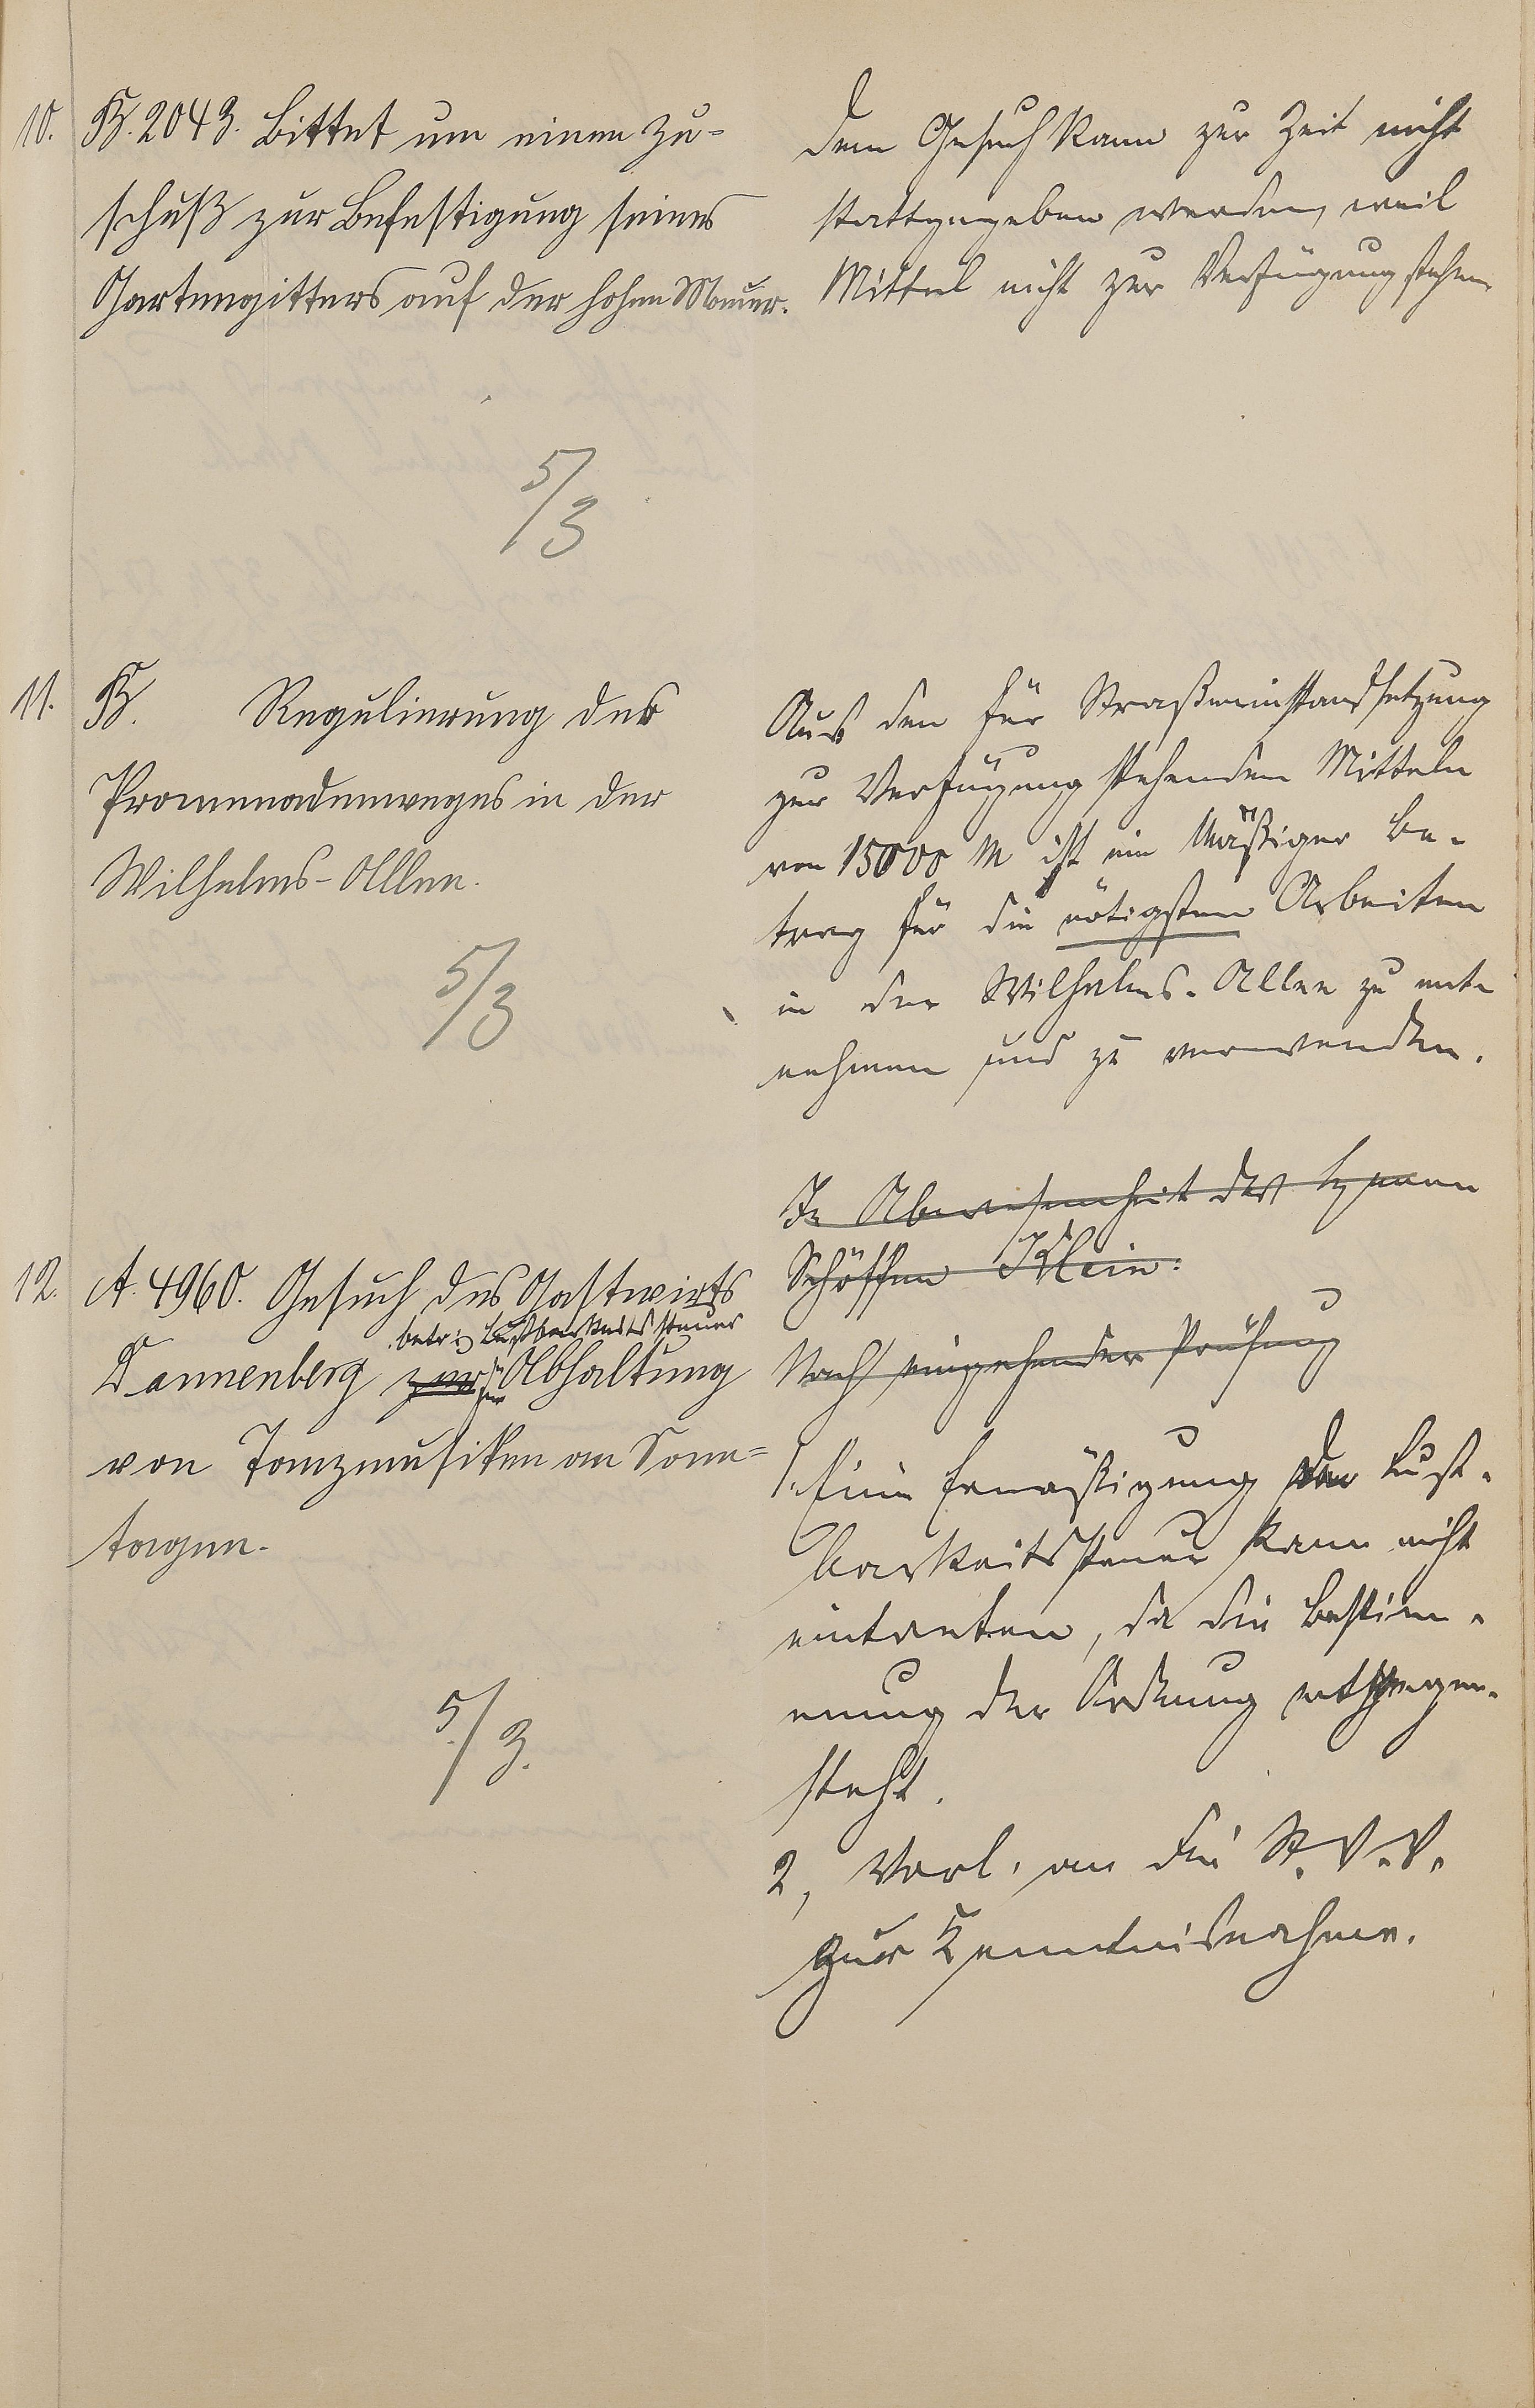 10. B. 2043. Bittet um einen Zu-
schuß zur Befestigung seines
Gartengitters auf der hohen Mauer.
Dem Gesuch kann zur Zeit nicht
stattgegeben werden, weil
Mittel nicht zur Verfügung stehen
5/3
11. B. Regulierung des
Promenadenweges in der
Wilhelms-Allee.
5/3
Aus den für Straßeninstandsetzung
zur Verfügung stehenden Mitteln
von 15000 M ist ein mäßiger Be-
trag für die nötigsten Arbeiten
in der Wilhelms-Allee zu ent-
nehmen und zu verwenden.
12. A. 4960. Gesuch des Gastwirts
betr: Lustbarkeitssteuer
Dannenberg zur für Abhaltung
von Tanzmusiken an Sonn-
tagen.
5/3.
In Abwesenheit des Herrn
Schöffen Klein:
Nach eingehender Prüfung
1. Eine Ermäßigung der Lust-
barkeitssteuer kann nicht
eintreten, da die Bestim-
mung der Ordnung entgegen-
steht.
2, Vorl. an die St.V.V.
zur Kenntnisnahme.